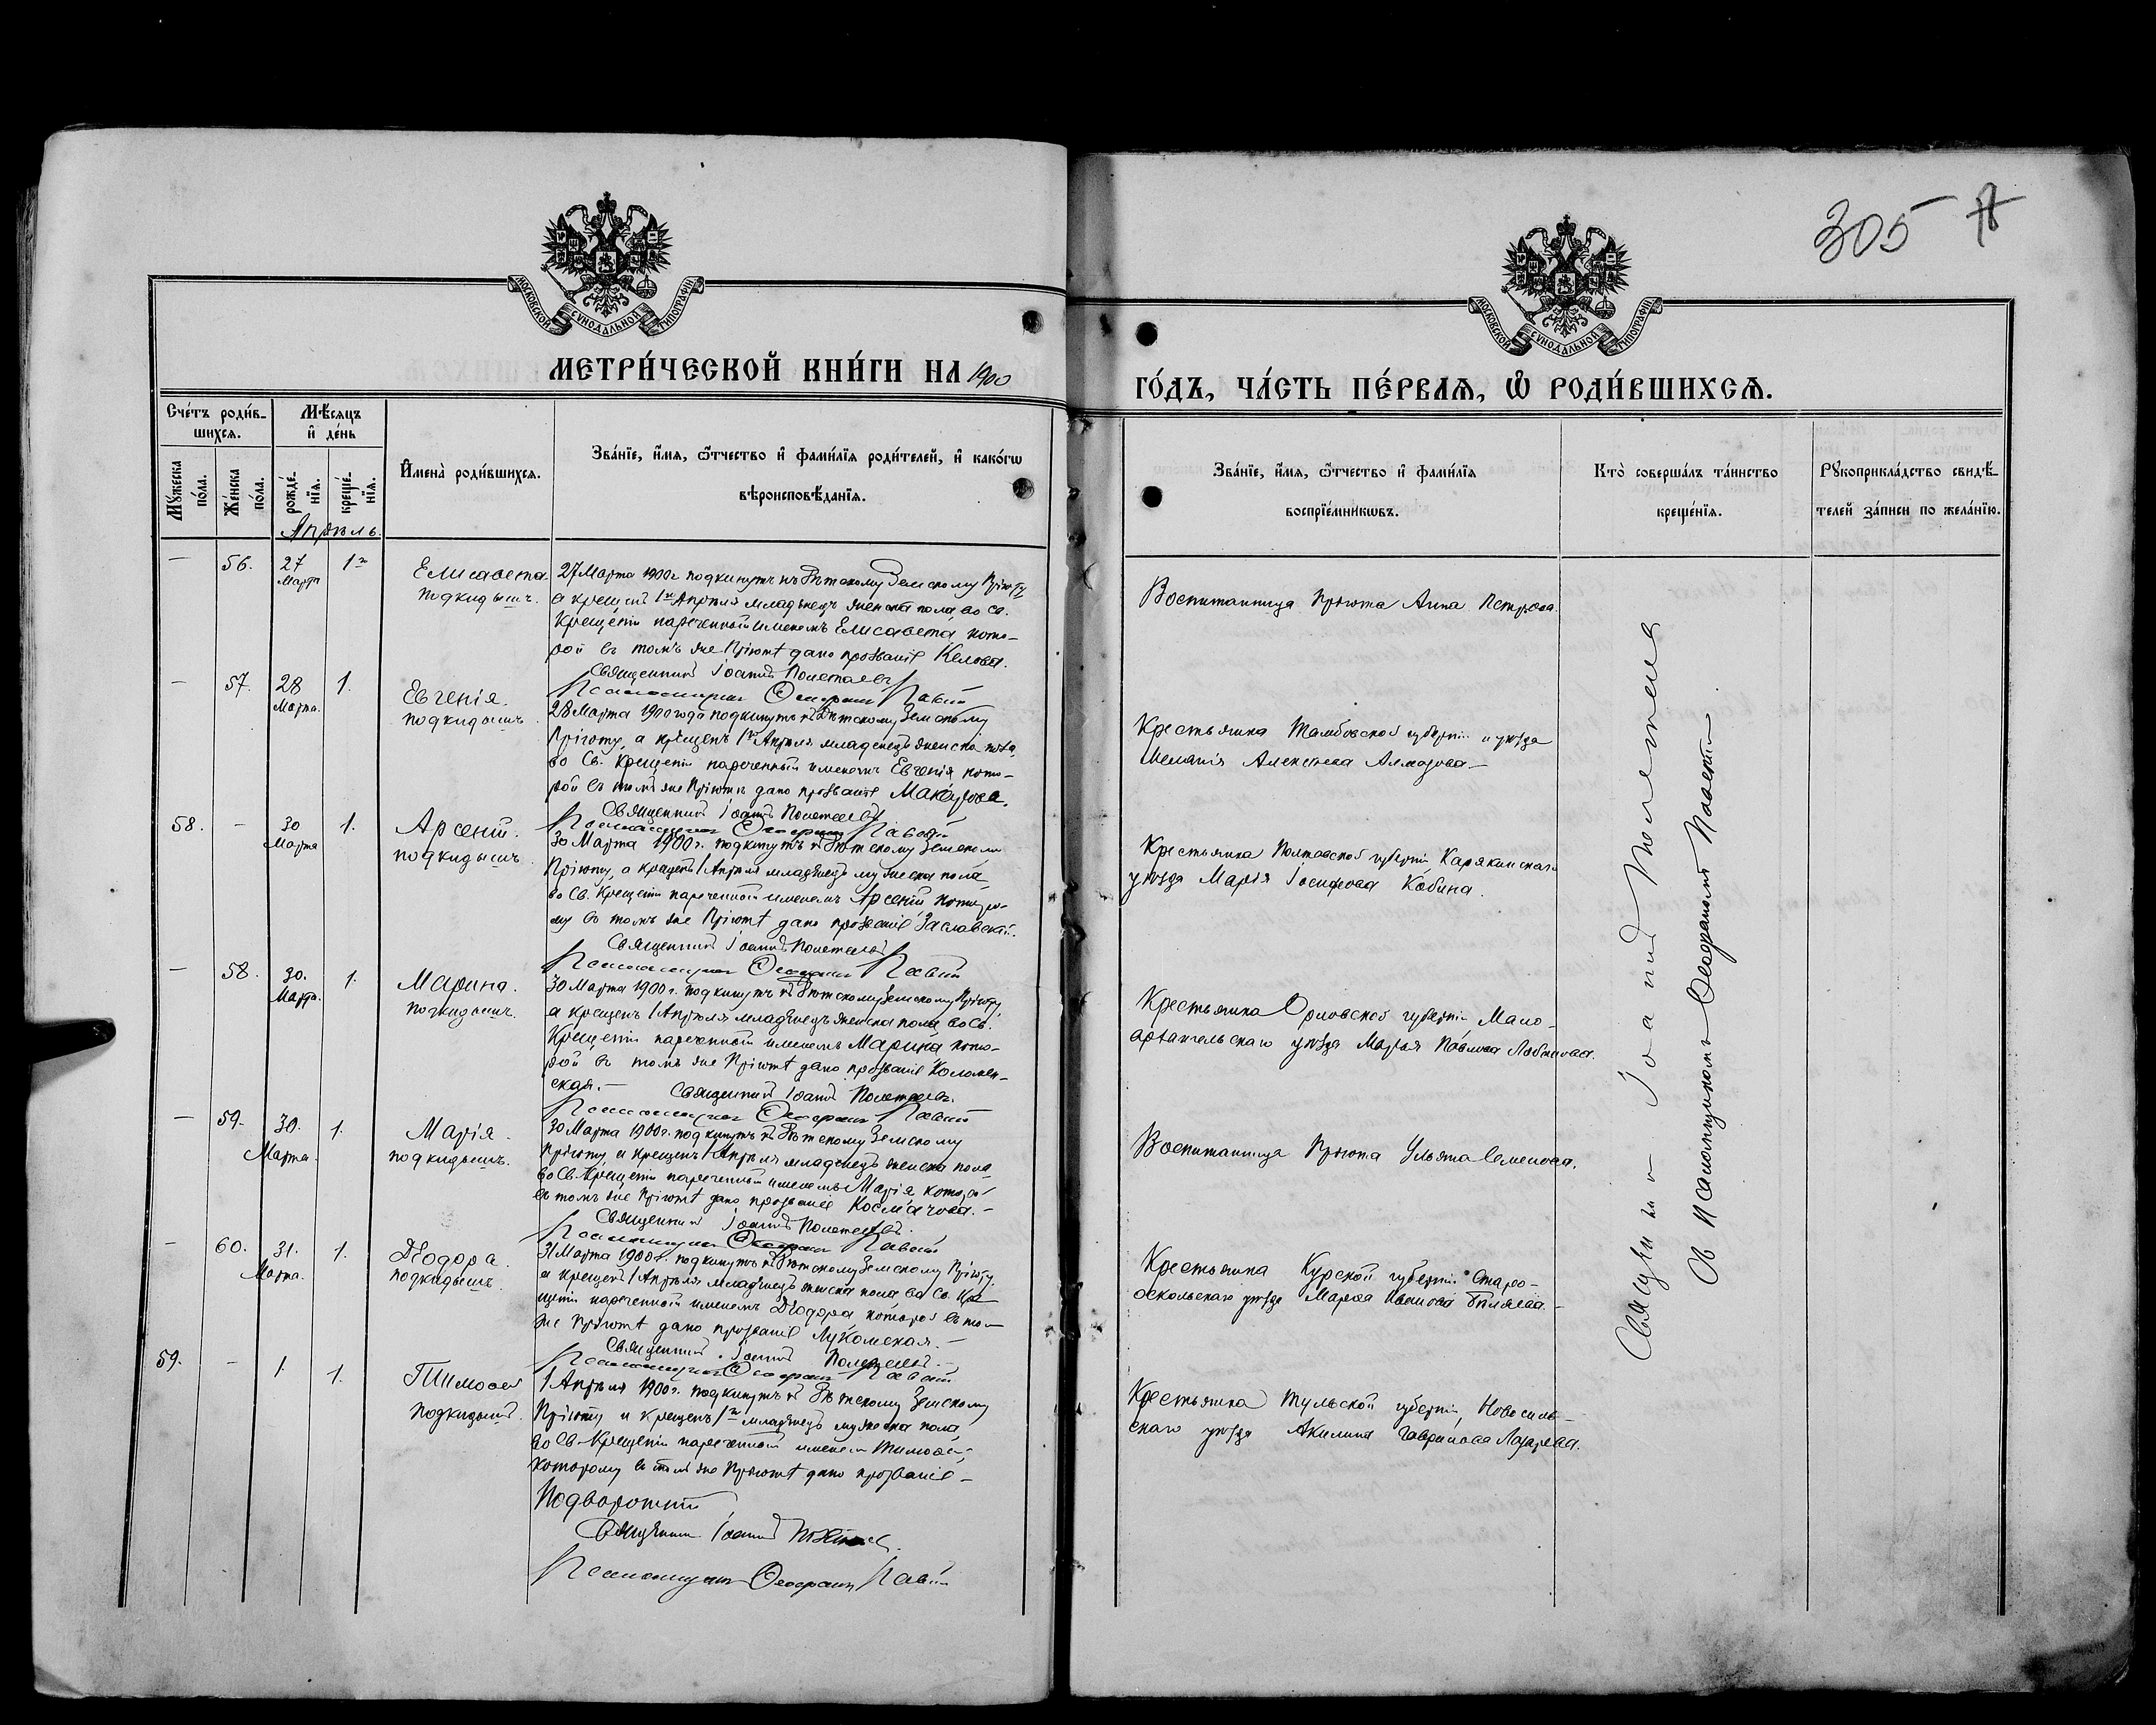 305
МОСКОВСКОЙ СѴНОДАЛЬНОЙ ТИПОГРАФІИ
МОСКОВСКОЙ СѴНОДАЛЬНОЙ ТИПОГРАФІИ
МЕТРИ́ЧЕСКОЙ КНИ́ГИ НА 1900
ГО́ДЪ, ЧА́СТЬ ПЕ́РВАѦ, Ѽ РОДИ́ВШИХСѦ.
Сче́тъ роди́в-
шихсѧ.
Мѣ́сѧцъ
и҆ де́нь
Мꙋ́жеска
по́ла.
Же́нска
по́ла.
рожде́-
нїѧ.
креще́-
нїѧ.
И҆мена̀ роди́вшихсѧ.
Зва́нїе, и҆́мѧ, ѻ҆́тчество и҆ фами́лїѧ роди́телей, и҆ како́гѡ
вѣроисповѣ́данїѧ.
Зва́нїе, и҆́мѧ, ѻ҆́тчество и҆ фами́лїѧ
воспрїе́мникѡвъ.
Кто̀ соверша́лъ та́инство
креще́нїѧ.
Рꙋкоприкла́дство свидѣ́-
телей за́писи по жела́нїю.
Апрѣль
— 56. 27 Марта 1го
Елисавета
подкидышъ.
27 Марта 1900 г подкинутъ къ Дѣтскому Земскому Пріюту,
а крещенъ 1го Апрѣля младенецъ женска пола, во св.
Крещеніи нареченный именемъ Елисавета, кото-
рой въ томъ же Пріютѣ дано прозваніе Келова.
Священникъ Іоаннъ Полетаевъ
Псаломщикъ
Воспитанница Пріюта Анна Петрова.
— 57. 28 Марта. 1.
Евгенія.
подкидышъ.
28 Марта 1900 года подкинутъ къ Дѣтскому Земскому
Пріюту, а крещенъ 1го Апрѣля младенецъ женска пола,
во Св. Крещеніи нареченный именемъ Евгенія кото-
рой въ томъ же Пріютѣ дано прозваніе
Священникъ Іоаннъ Полетаевъ
Псаломщикъ
Крестьянка Тамбовской губерніи и уѣзда
Меланія Алексѣева Алмазова —
58. — 30 Марта 1.
Арсеній.
подкидышъ.
30 Марта 1900 г. подкинутъ къ Дѣтскому Земскому
Пріюту, а крещенъ 1 Апрѣля младенецъ мужеска пола,
во Св. Крещеніи нареченный именемъ Арсеній, которо-
му въ томъ же Пріютѣ дано прозваніе Заславскій.
Священникъ Іоаннъ Полетаевъ
Псаломщикъ
Крестьянка Полтавской губерніи
уѣзда Марія Іосифова Кобина.
— 58. 30. Марта. 1.
Марина.
подкидышъ.
30 Марта 1900 г. подкинутъ къ Дѣтскому Земскому Пріюту,
а крещенъ 1 Апрѣля младенецъ женска пола во Св.
Крещеніи нареченный именемъ Марина, кото-
рой въ томъ же Пріютѣ дано прозваніе Коломен-
ская. —
Священникъ Іоаннъ Полетаевъ.
Псаломщикъ
Крестьянка Орловской губерніи, Мало-
архангельскаго уѣзда Марья Павлова
— 59. 30. Марта. 1.
Марія.
подкидышъ.
30 Марта 1900 г. подкинутъ къ Дѣтскому Земскому
Пріюту и крещенъ 1 Апрѣля младенецъ женска пола
во Св. Крещеніи нареченный именемъ Марія, которой
въ томъ же Пріютѣ дано прозваніе Космачова. —
Священникъ Іоаннъ Полетаевъ.
Псаломщикъ
Воспитанница Пріюта Ульяна Семенова.
— 60. 31. Марта. 1.
Ѳеодора.
подкидышъ.
31 Марта 1900 г. подкинутъ къ Дѣтскому Земскому Пріюту,
а крещенъ 1 Апрѣля младенецъ женска пола во Св. Кре-
щеніи нареченный именемъ Ѳеодора которой въ томъ
же Пріютѣ дано прозваніе Лукомская. —
Священникъ Іоаннъ Полетаевъ. —
Псаломщикъ
Крестьянка Курской губерніи Старо-
оскольскаго уѣзда Марѳа Иванова Бѣляева. —
59. — 1. 1.
Тимоѳей
подкидышъ.
1 Апрѣля 1900 г. подкинутъ къ Дѣтскому Земскому
Пріюту и крещенъ 1го младенецъ мужеска пола,
во Св. Крещеніи нареченный именемъ Тимоѳей,
которому въ томъ же Пріютѣ дано прозваніе —
Священникъ Іоаннъ Полетаевъ.
Псаломщикъ
Крестьянка Тульской губерніи, Новосиль-
скаго уѣзда Акилина Гаврилова Лазарева.
Священникъ Іоаннъ Полетаевъ
Съ Псаломщикомъ